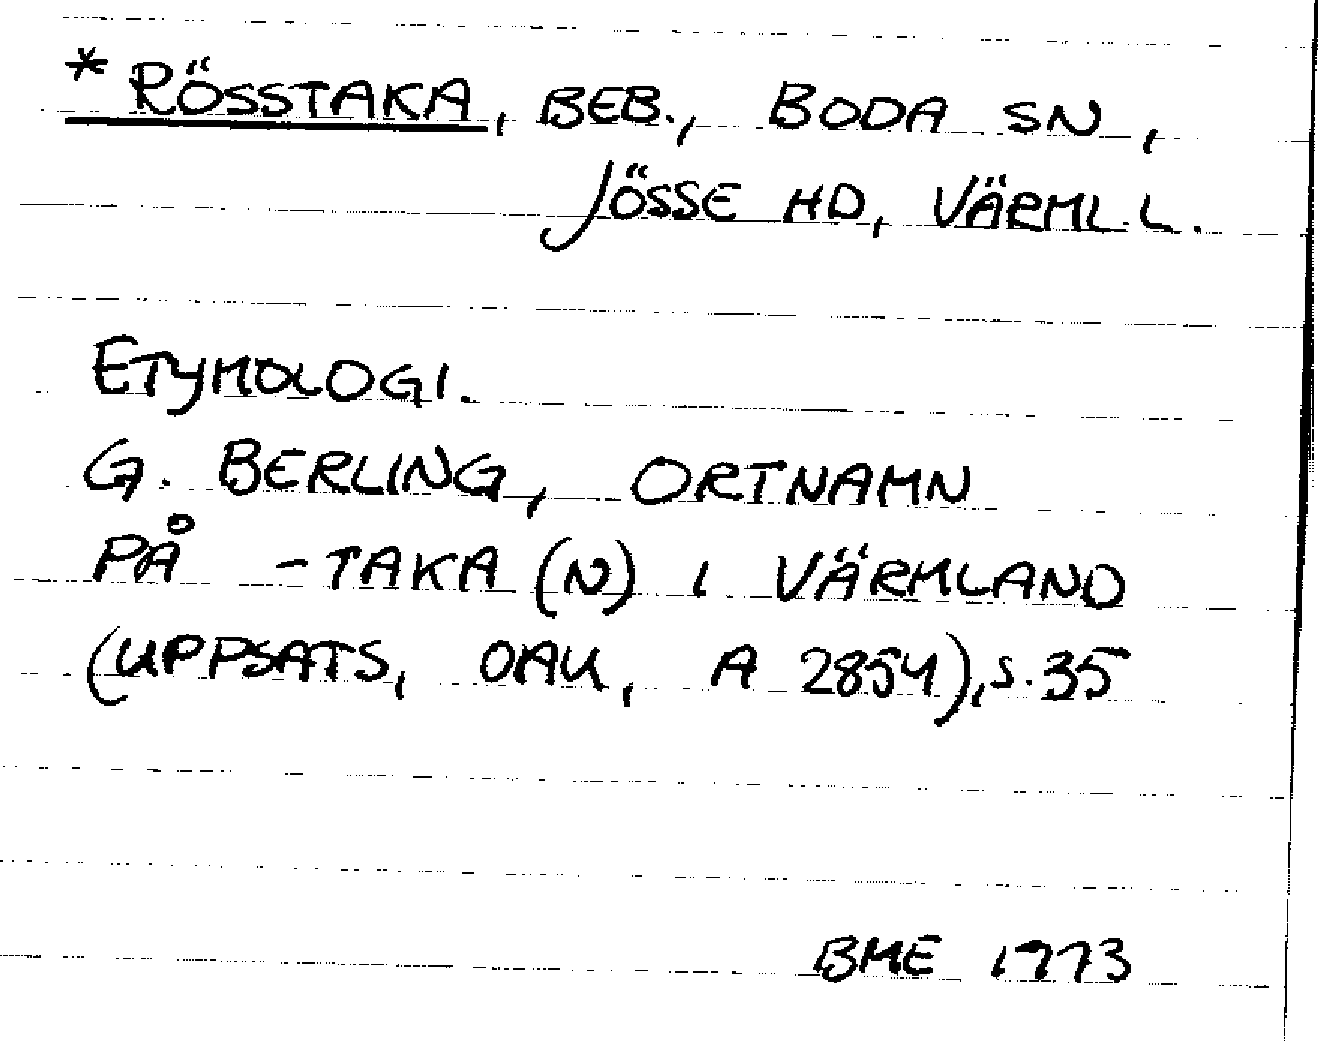 * RÖSSTAKA, BEB., BODA SN,
JÖSSE HD, VÄRML. L.
ETYMOLOGI.
G. BERLING, ORTNAMN
PÅ -TAKA (N) I VÄRMLAND
(UPPSATS, OAU, A 2854), S. 35
BME 1973